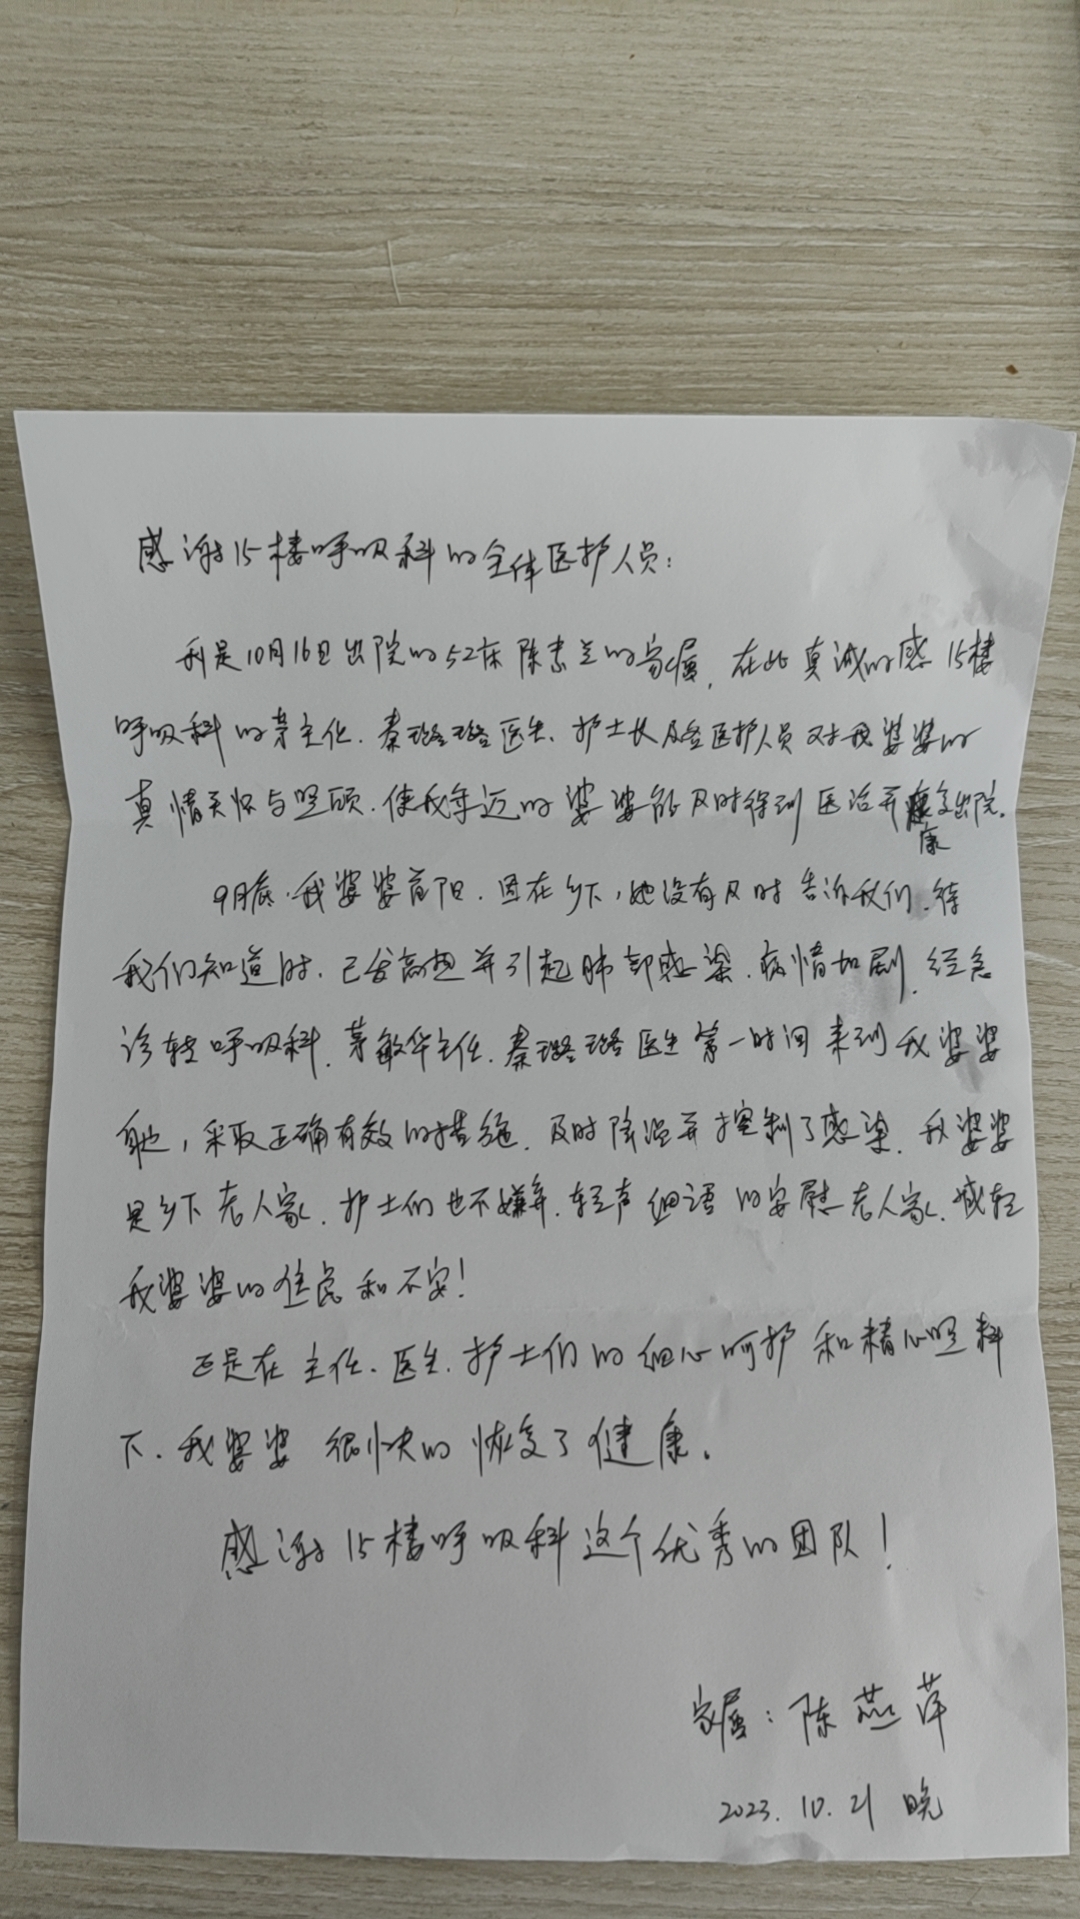 感谢15楼呼吸科的全体医护人员：
我是10月16日出院的52床陈素兰的家属，在此真诚的感15楼
呼吸科的茅主任、秦璐璐医生、护士长及各医护人员对我婆婆的
真情关怀与照顾，使我年迈的婆婆能及时得到医治并康复出院。
9月底，我婆婆首阳，因在乡下，她没有及时告诉我们，待
我们知道时，已发高烧并引起肺部感染，病情加剧，经急
诊转呼吸科，茅敏华主任、秦璐璐医生第一时间来到我婆婆
身边，采取正确有效的措施，及时降温并控制了感染，我婆婆
是乡下老人家，护士们也不嫌弃，轻声细语的安慰老人家，减轻
我婆婆的焦虑和不安！
正是在主任、医生、护士们的细心呵护和精心照料
下，我婆婆很快的恢复了健康。
感谢15楼呼吸科这个优秀的团队！
家属：陈燕萍
2023.10.21晚